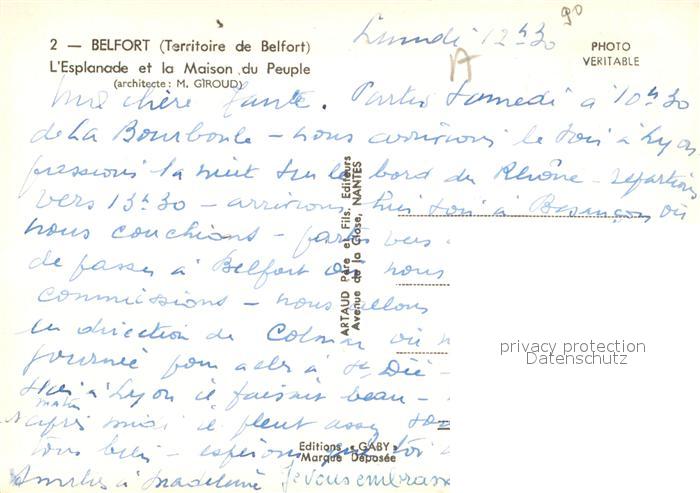 Lundi 12h30
90
A
2 — BELFORT (Territoire de Belfort)
L'Esplanade et la Maison du Peuple
(architecte : M. GIROUD)
PHOTO
VERITABLE
Ma chère Tante. Partis Samedi à 10h30
de La Bourboule - nous arrivions le soir à Lyon
passions la nuit sur le bord du Rhône - repartions
vers 13h30 - arrivions hier soir à Besançon où
nous couchions - partis vers
de passer à Belfort où nous
commissions - nous allons
en direction de Colmar où n
journée pour aller à St Dié -
Hier à Lyon il faisait beau -
matin
après midi il pleut assez
tous bien - espérons que toi
Amitiés à Madeleine Je vous embrass
ARTAUD Père et Fils, Editeurs
Avenue de la Close, NANTES
Editions « GABY »
Marque Déposée
privacy protection
Datenschutz